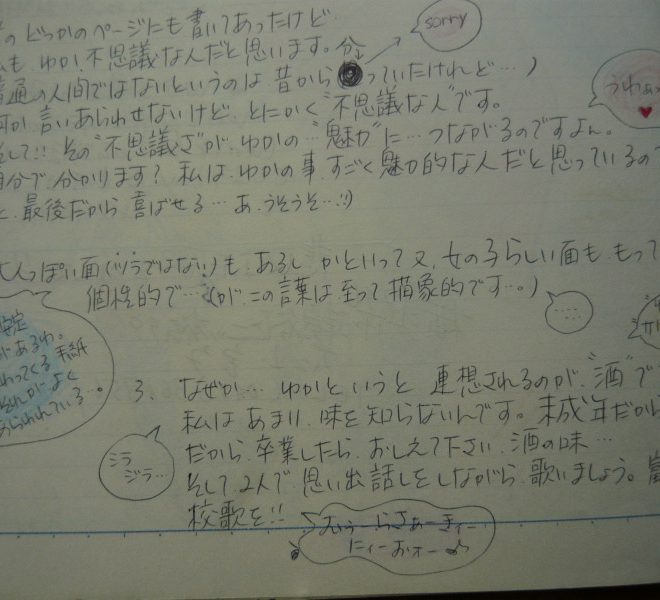 のどっかのページにも書いてあったけど.
も ゆか、不思議な人だと思います。
sorry
通の人間ではないというのは昔から 分かっていたけれど…)
か言いあらわせないけど、とにかく"不思議な人"です。
うわぁ
して!! その"不思議さ"が、ゆかの…"魅力"に…つながるのですよん。
分で分かります? 私は、ゆかの事、すごく魅力的な人だと思っているの
、最後だから、喜ばせる…あ、うそうそ…!!)
人っぽい面(ヅラではない!)も、あるし かといって又、女の子らしい面も、もって
個性的で…(が、この言葉は、至って抽象的です…。)
があるわ。
手紙
それがよく
あらわれている…。
3. なぜか… ゆかというと 連想されるのが、"酒"で
私は あまり、味を知らないんです。未成年だから
だから、卒業したら、おしえて下さい、酒の味…
ジラ
ジラ…
そして、2人で 思い出話しをしながら、歌いましょう。
校歌を!!
むぅーらさぁーきぃー
にぃーおぉー♪